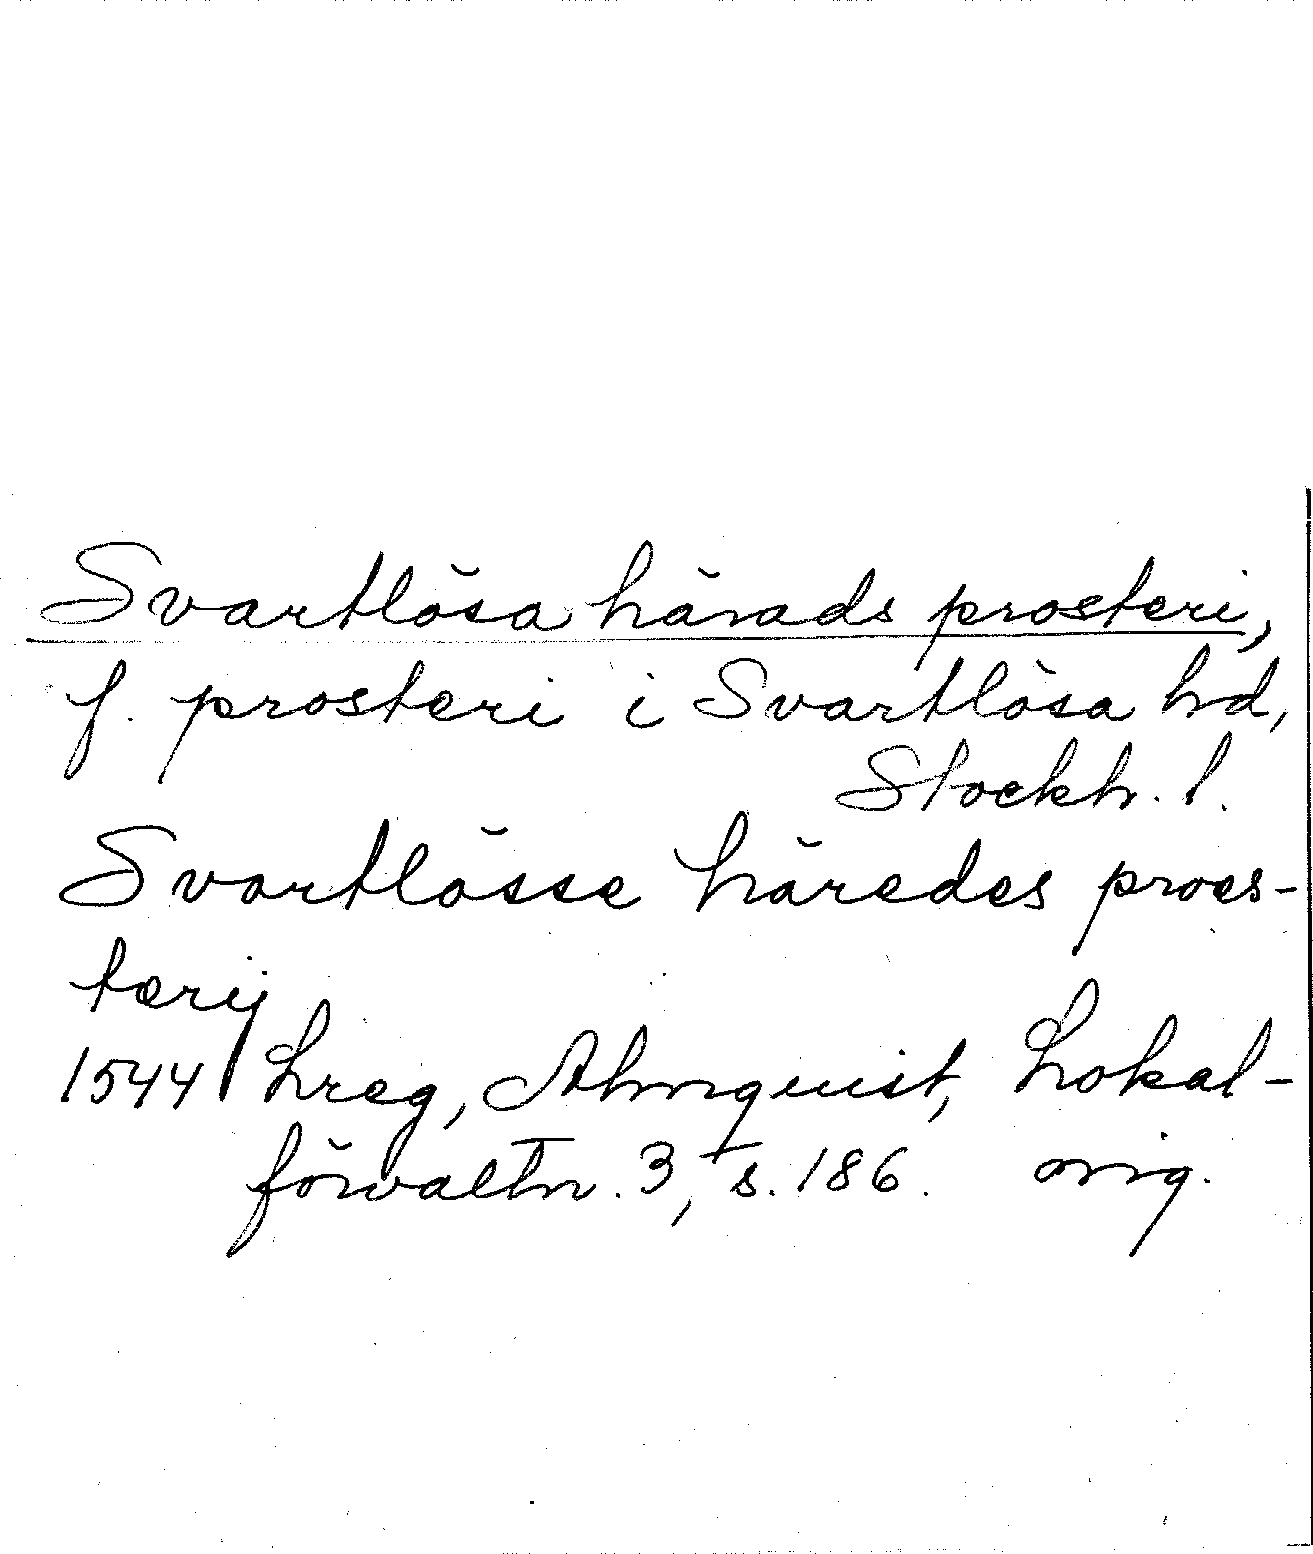 Svartlösa härads prosteri,
f. prosteri i Svartlösa hd,
Stockh. l.
Svartlösse häredes proes-
terij
1544 Lreg, Almquist, Lokal-
förvaltn. 3, s. 186. orig.